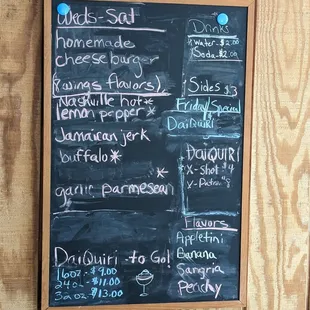 Weds-Sat
homemade
cheeseburger
(wings flavors)
Nashville hot*
lemon pepper*
Jamaican jerk
buffalo*
garlic parmesean
DaiQuiri to Go!
16oz - $9.00
24oz - $11.00
32oz $13.00
Drinks
Water - $2.00
Soda - $2.00
Sides $3
Friday Special
DaiQuiri
DaiQUIRI
X-Shot $4
V-Patron
Flavors
Appletini
Banana
Sangria
Peachy